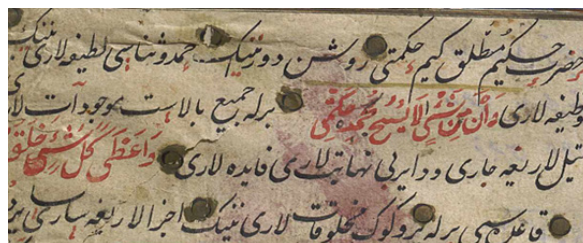 حضرت حکیم مطلق کیم حکمتی روشن دورنینک حمد و ثناسی لطیفه لاری نینک
وظیفه لاری وان من شئ الا یسبح بحمده حکمتی برله جمیع بالاست موجودات
تیل لاریغه جاری و دایر بی نهایت لاری فایده لاری واعطی کل شئ خلقه
قاعده سی برله مخلوقات لاری نینک اجزا لاریغه ساری